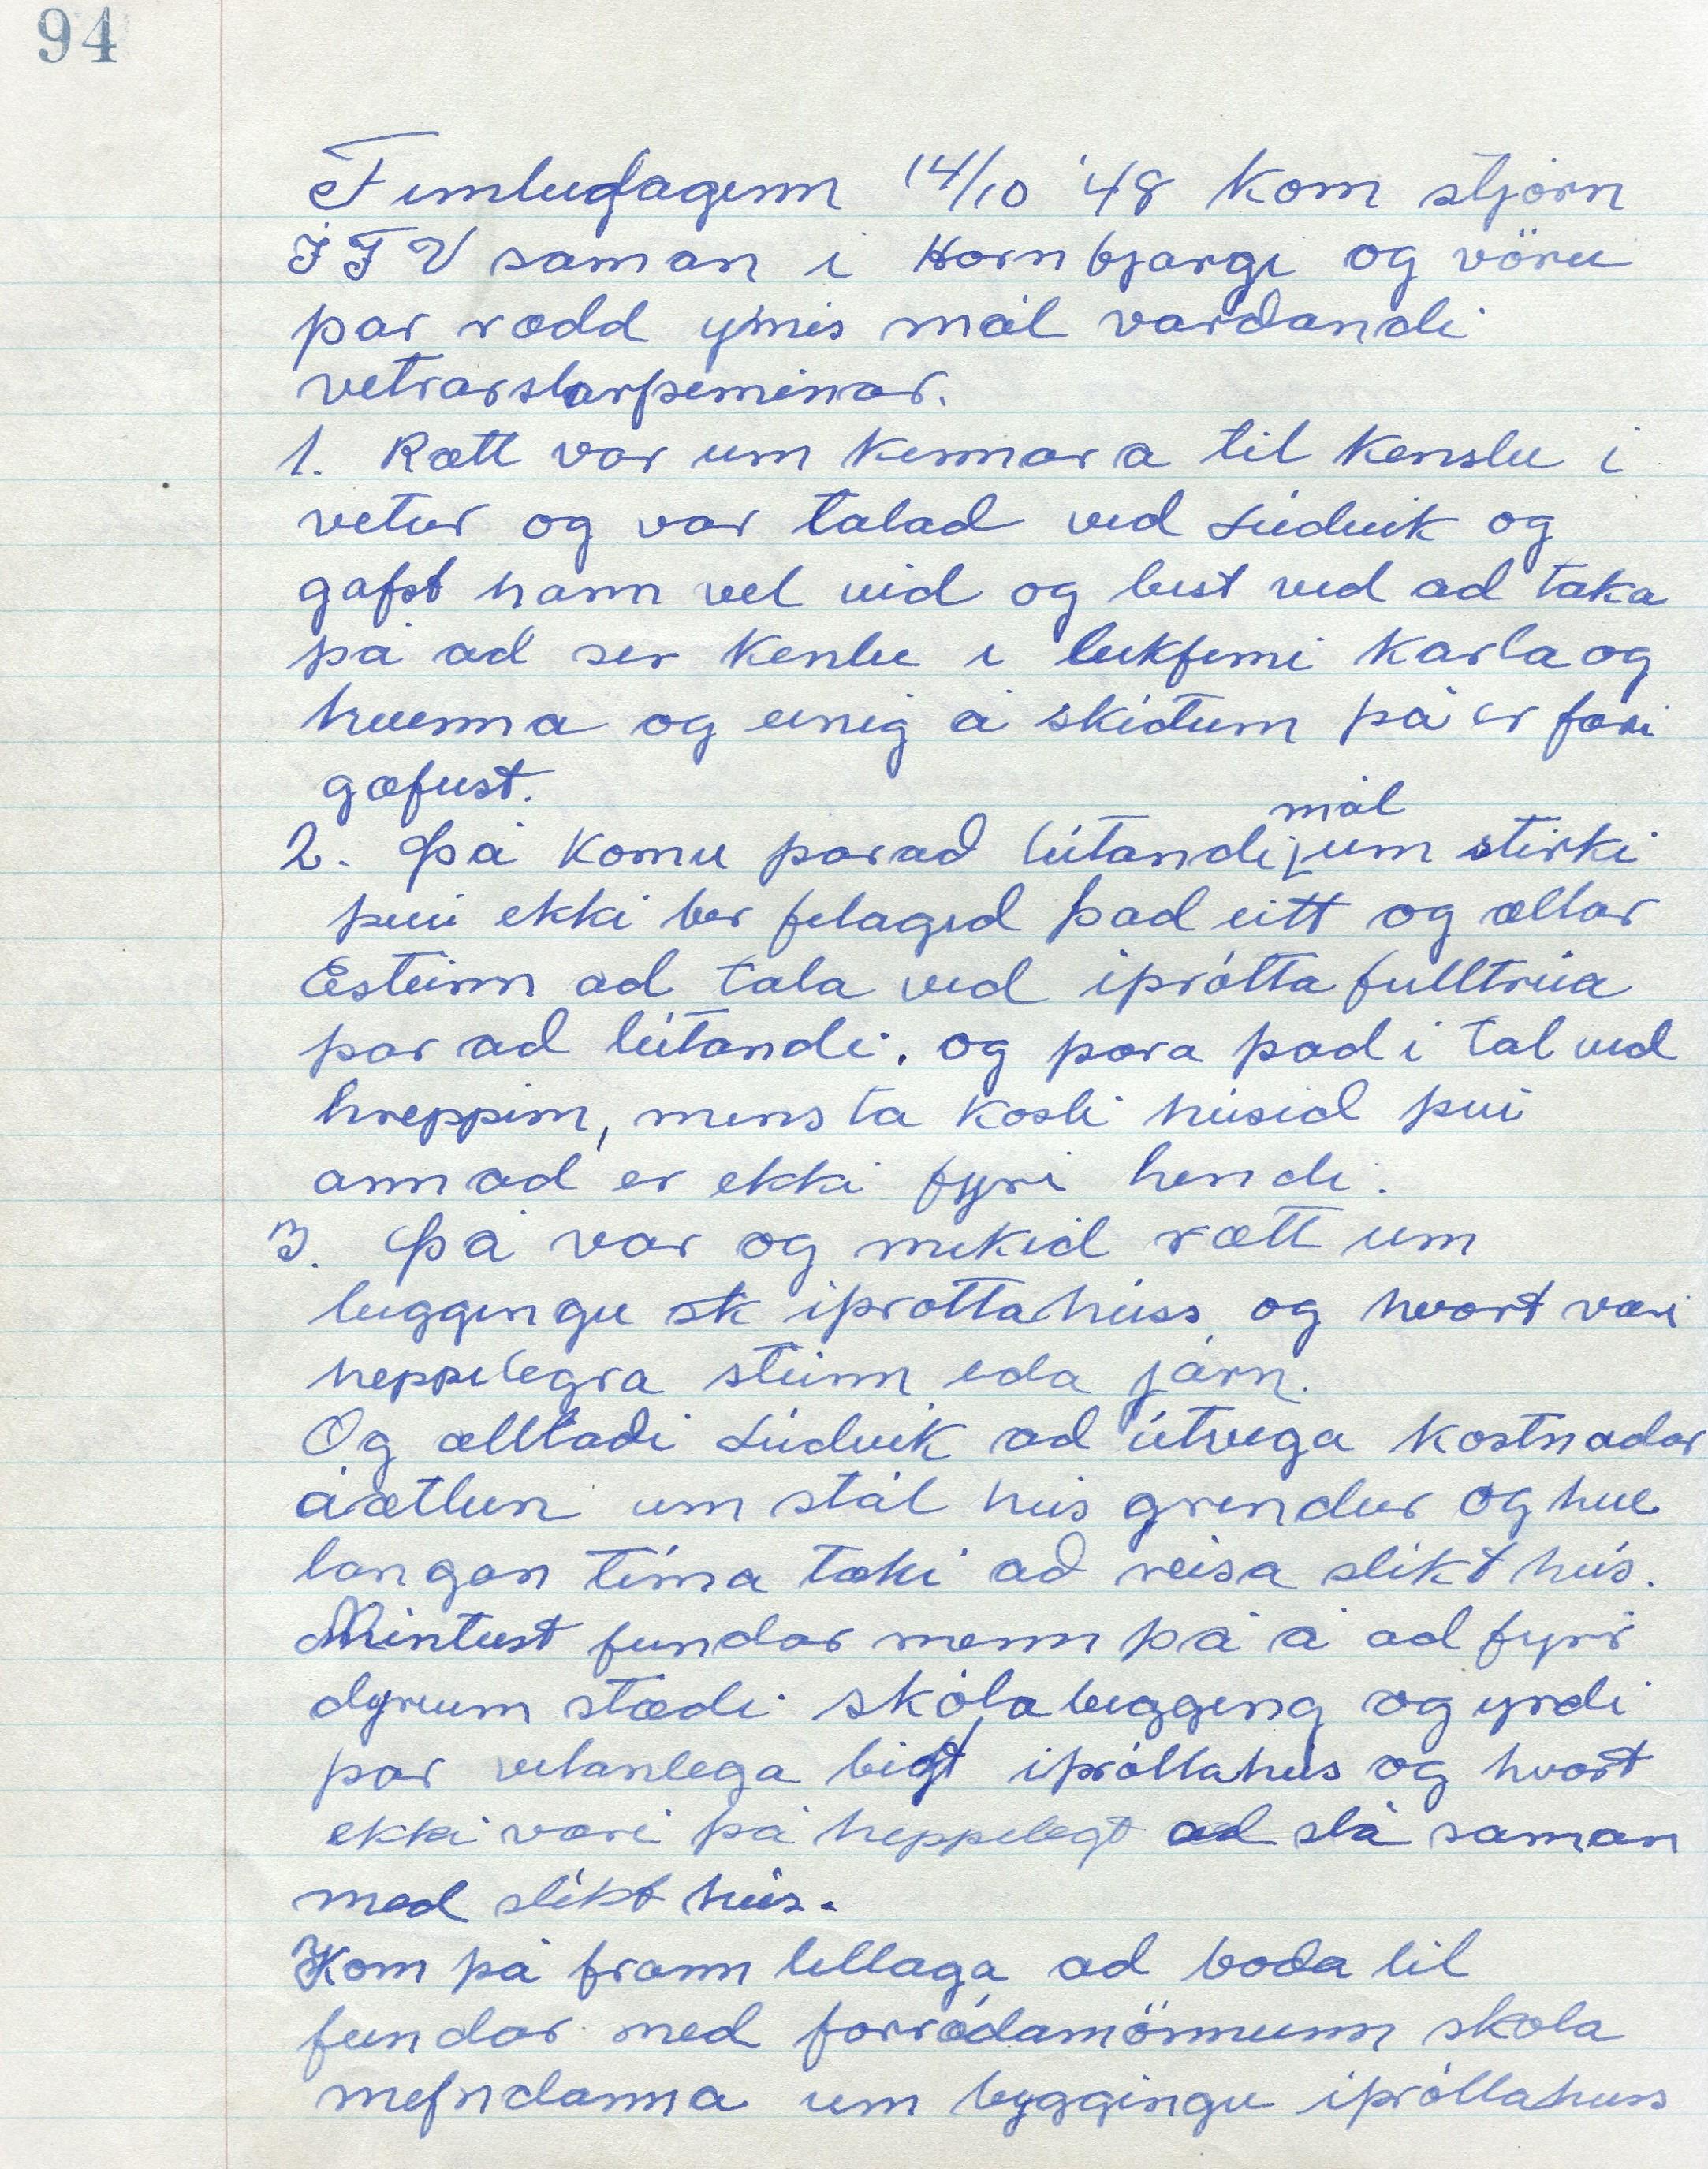 94
Fimtudaginn 14/10 '48 kom stjórn
Í F V saman i Hornbjargi og vöru
þar rædd ymis mál varðandi
vetrarstarfseminar.
1. Rætt var um kennara til kenslu i
vetur og var talad vid Lúdvik og
gafst hann vel vid og bist vid ad taka
þá ad ser kenslu i leikfimi karla og
kvenna og einig á skídum þá er færi
gæfust.
mál
2. Þá komu þarad lútandi um stirki
þvi ekki ber felagid þad eitt og ætlar
Eisteinn ad tala vid iþrótta fulltrúa
þar ad lútandi. og færa þad i tal vid
hreppinn, minsta kosti húsid þvi
annad er ekki fyri hendi.
3. Þá var og mikid rætt um
biggingu sk iþrottahúss og hvort væri
heppilegra steinn eda járn.
Og ætladi Lúdvik ad útvega kostnadar
áætlun um stál hús grindur og hve
langan tíma tæki ad reisa slíkt hús.
Mintust fundar menn þá á ad fyrir
dyrum stædi skóla bigging og yrdi
þar vetanlega bigt iþróttahús og hvort
ekki væri þá heppilegt ad slá saman
med slíkt hús.
Kom þá framm tillaga ad boda til
fundar med forrádamönnum skola
nefndanna um byggingu iþróttahuss